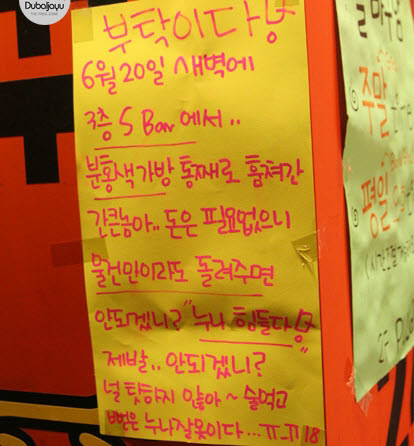 Dubaljayu
부탁이다
6월 20일 새벽에
3층 S Bar 에서..
분홍색가방 통째로 훔쳐간
간큰놈아.. 돈은 필요없으니
물건만이라도 돌려주면
안되겠니? "누나 힘들다"
제발.. 안되겠니?
널 탓하지 않아 ~ 술먹고
뻗은 누나잘못이다... ㅠㅠ 18
주말
평일